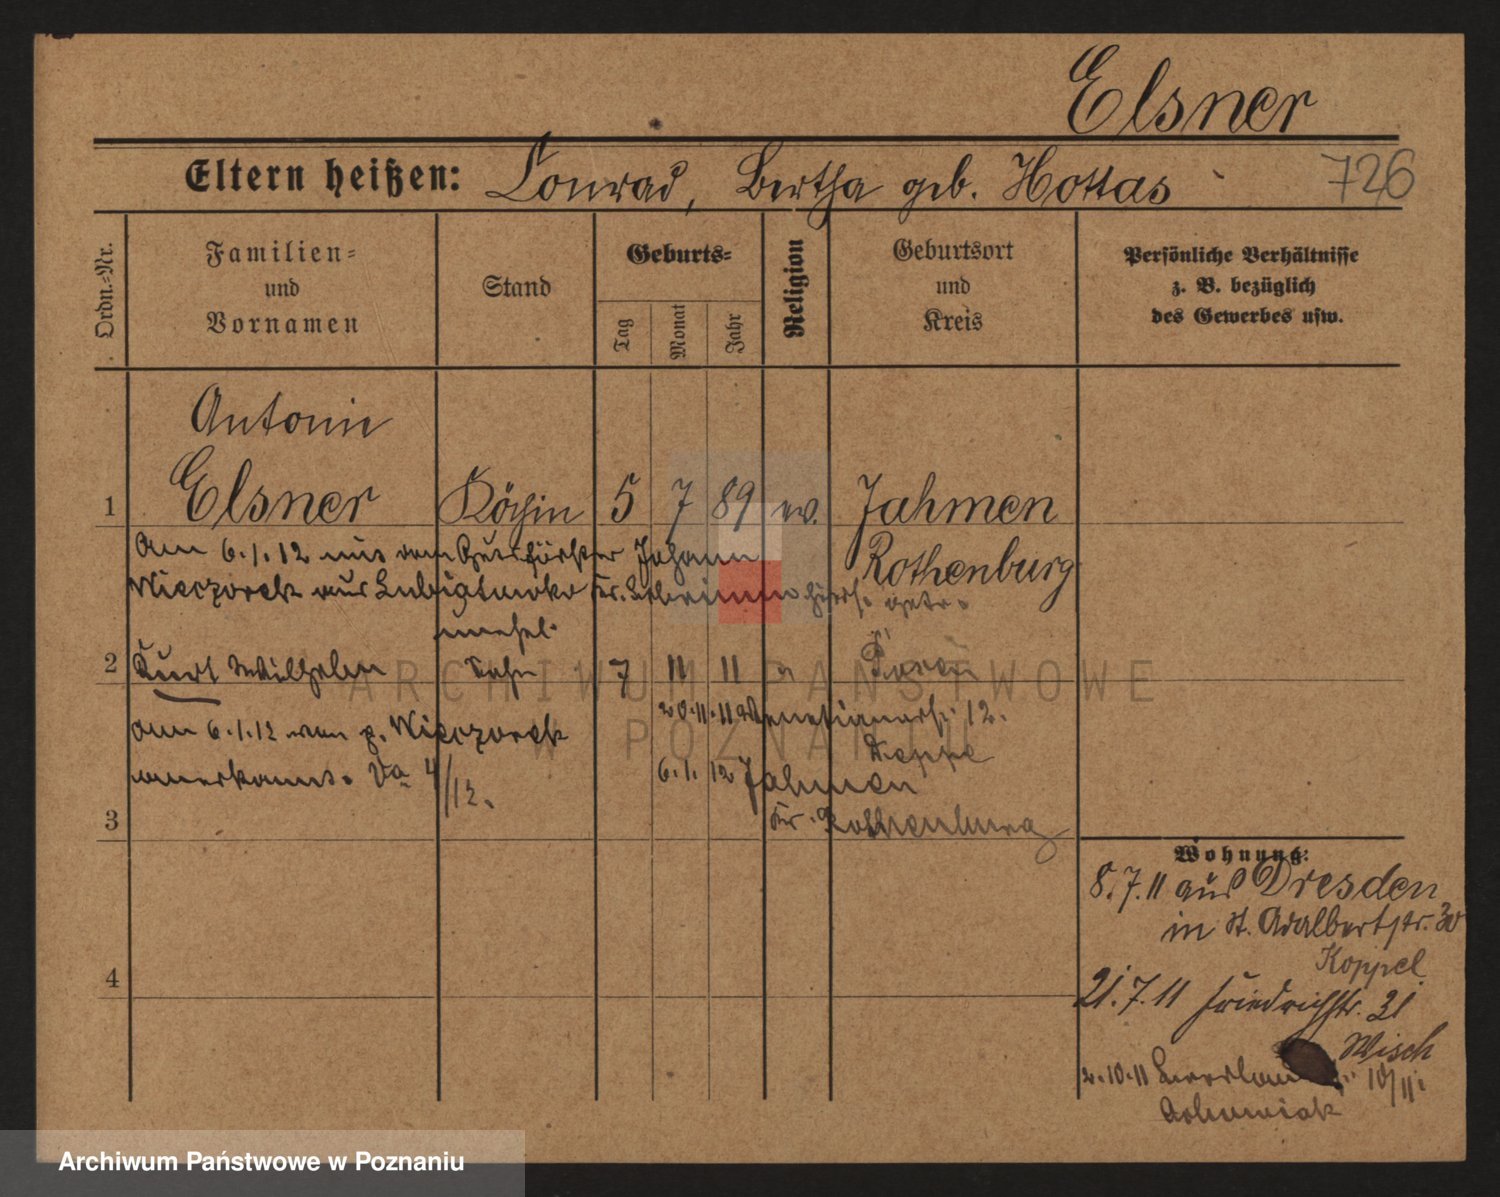 Elsner
Eltern heißen: Conrad, Bertha geb. Hottas
726
Ordn.=Nr.
Familien=
und
Vornamen
Stand
Geburts=
Tag
Monat
Jahr
Religion
Geburtsort
und
Kreis
Persönliche Verhältnisse
z. B. bezüglich
des Gewerbes usw.
Antonie
1 Elsner Köchin 5 7 89 ev. Jahmen
Rothenburg
Am 6.1.12 mit dem Johann
Wieczorek aus Kr. getr.
unehel.
2 Kurt Wilhelm Sohn 7 11 11 " Posen
20.11.11 Venetianerstr. 12.
am 6.1.12 von p. Wieczorek
anerkannt.
6.1.12 Jahmen
3 Kr. Rothenburg
Wohnung:
8.7.11 aus Dresden
in St. Adalbertstr. 30
Koppel
4
21.7.11 Friedrichstr. 31
Wisch
2.10.11 10/11.
ARCHIWUM PAŃSTWOWE
W POZNANIU
Archiwum Państwowe w Poznaniu